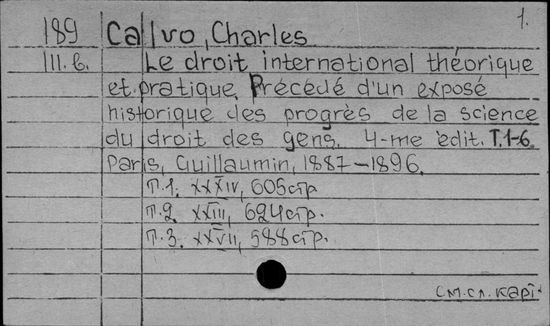 1.
189 Calvo, Charles
III.б. Le droit international théorique
et pratique. Précédé d'un exposé
historique des progrès de la science
du droit des gens. 4-me édit. T.1-6.
Paris, Guillaumin, 1887-1896.
Т.1. XXXIV, 605стр
Т.2. XXIII, 624стр.
Т.3. XXVII, 588стр.
см.сл.карт.